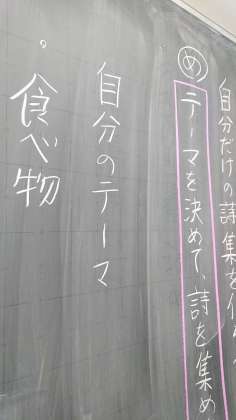 自分だけの詩集を
め テーマを決めて、詩を集め
自分のテーマ
。食べ物